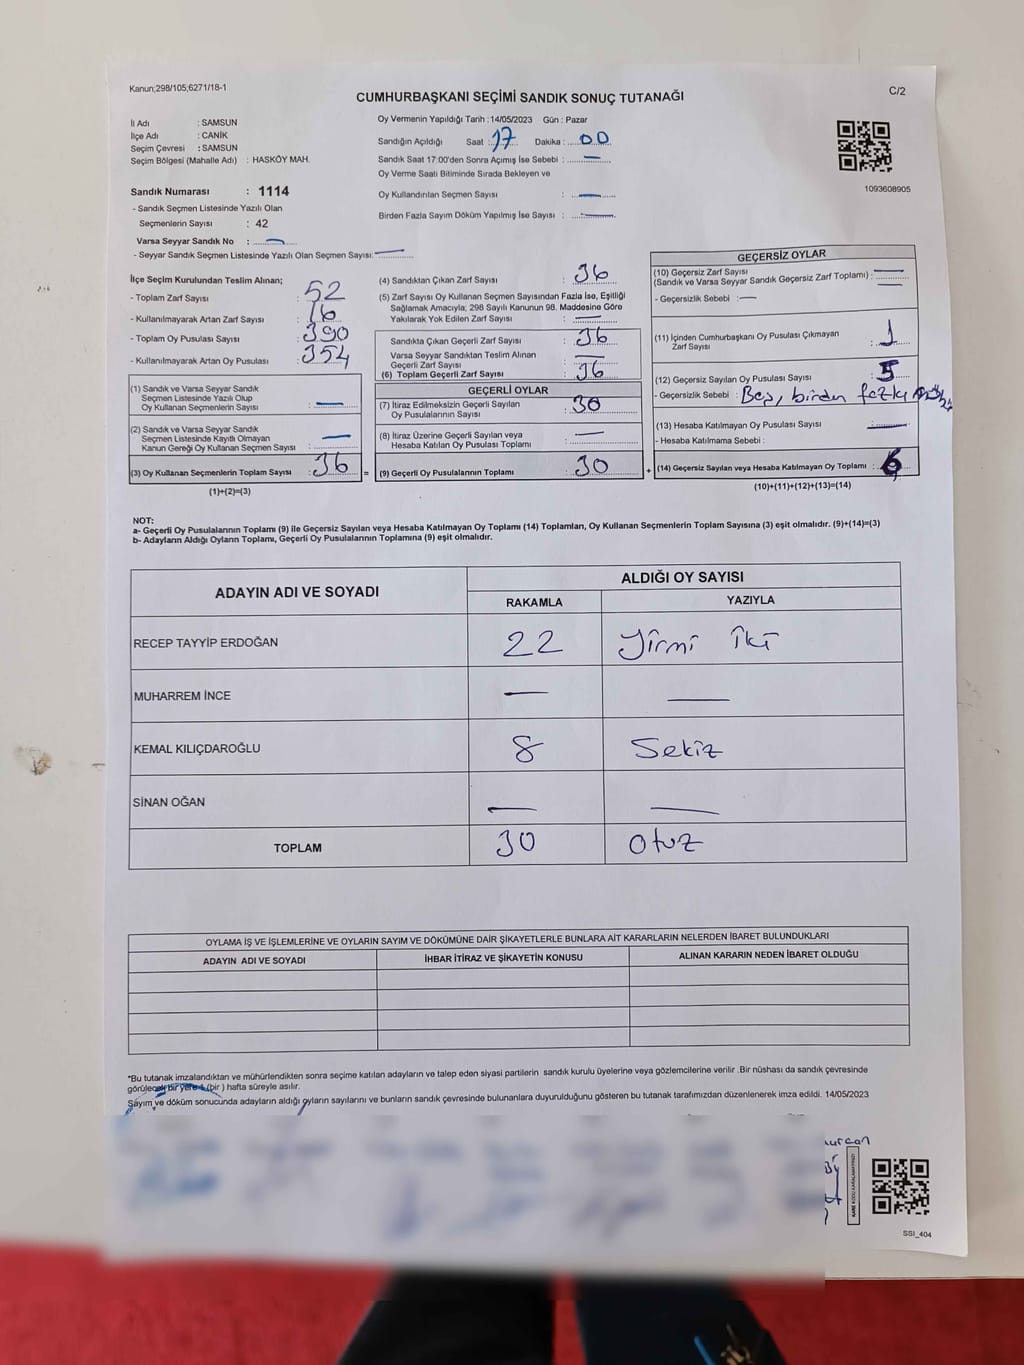 Kanun;298/105;6271/18-1
CUMHURBAŞKANI SEÇİMİ SANDIK SONUÇ TUTANAĞI
C/2
İl Adı : SAMSUN
İlçe Adı : CANİK
Seçim Çevresi : SAMSUN
Seçim Bölgesi (Mahalle Adı) : HASKÖY MAH.
Sandık Numarası : 1114
- Sandık Seçmen Listesinde Yazılı Olan
Seçmenlerin Sayısı : 42
Varsa Seyyar Sandık No : —
- Seyyar Sandık Seçmen Listesinde Yazılı Olan Seçmen Sayısı: —
Oy Vermenin Yapıldığı Tarih : 14/05/2023 Gün : Pazar
Sandığın Açıldığı Saat : 17 Dakika : 00
Sandık Saat 17:00'den Sonra Açımış İse Sebebi : —
Oy Verme Saati Bitiminde Sırada Bekleyen ve
Oy Kullandırılan Seçmen Sayısı : —
Birden Fazla Sayım Döküm Yapılmış İse Sayısı : —
1093608905
İlçe Seçim Kurulundan Teslim Alınan;
- Toplam Zarf Sayısı : 52
- Kullanılmayarak Artan Zarf Sayısı : 16
- Toplam Oy Pusulası Sayısı : 390
- Kullanılmayarak Artan Oy Pusulası : 354
(1) Sandık ve Varsa Seyyar Sandık
Seçmen Listesinde Yazılı Olup
Oy Kullanan Seçmenlerin Sayısı : —
(2) Sandık ve Varsa Seyyar Sandık
Seçmen Listesinde Kayıtlı Olmayan
Kanun Gereği Oy Kullanan Seçmen Sayısı : —
(3) Oy Kullanan Seçmenlerin Toplam Sayısı : 36 =
(1)+(2)=(3)
(4) Sandıktan Çıkan Zarf Sayısı : 36
(5) Zarf Sayısı Oy Kullanan Seçmen Sayısından Fazla İse, Eşitliği
Sağlamak Amacıyla; 298 Sayılı Kanunun 98. Maddesine Göre
Yakılarak Yok Edilen Zarf Sayısı : —
Sandıkta Çıkan Geçerli Zarf Sayısı : 36
Varsa Seyyar Sandıktan Teslim Alınan
Geçerli Zarf Sayısı : —
(6) Toplam Geçerli Zarf Sayısı : 36
GEÇERLİ OYLAR
(7) İtiraz Edilmeksizin Geçerli Sayılan
Oy Pusulalarının Sayısı : 30
(8) İtiraz Üzerine Geçerli Sayılan veya
Hesaba Katılan Oy Pusulası Toplamı : —
(9) Geçerli Oy Pusulalarının Toplamı : 30 +
GEÇERSİZ OYLAR
(10) Geçersiz Zarf Sayısı
(Sandık ve Varsa Seyyar Sandık Geçersiz Zarf Toplamı) : —
- Geçersizlik Sebebi : —
(11) İçinden Cumhurbaşkanı Oy Pusulası Çıkmayan
Zarf Sayısı : 1
(12) Geçersiz Sayılan Oy Pusulası Sayısı : 5
- Geçersizlik Sebebi : Beş, birden fazla
(13) Hesaba Katılmayan Oy Pusulası Sayısı : —
- Hesaba Katılmama Sebebi :
(14) Geçersiz Sayılan veya Hesaba Katılmayan Oy Toplamı : 6
(10)+(11)+(12)+(13)=(14)
NOT:
a- Geçerli Oy Pusulalarının Toplamı (9) ile Geçersiz Sayılan veya Hesaba Katılmayan Oy Toplamı (14) Toplamları, Oy Kullanan Seçmenlerin Toplam Sayısına (3) eşit olmalıdır. (9)+(14)=(3)
b- Adayların Aldığı Oyların Toplamı, Geçerli Oy Pusulalarının Toplamına (9) eşit olmalıdır.
ADAYIN ADI VE SOYADI
ALDIĞI OY SAYISI
RAKAMLA YAZIYLA
RECEP TAYYİP ERDOĞAN 22 Yirmi iki
MUHARREM İNCE — —
KEMAL KILIÇDAROĞLU 8 Sekiz
SİNAN OĞAN — —
TOPLAM 30 Otuz
OYLAMA İŞ VE İŞLEMLERİNE VE OYLARIN SAYIM VE DÖKÜMÜNE DAİR ŞİKAYETLERLE BUNLARA AİT KARARLARIN NELERDEN İBARET BULUNDUKLARI
ADAYIN ADI VE SOYADI İHBAR İTİRAZ VE ŞİKAYETİN KONUSU ALINAN KARARIN NEDEN İBARET OLDUĞU
*Bu tutanak imzalandıktan ve mühürlendikten sonra seçime katılan adayların ve talep eden siyasi partilerin sandık kurulu üyelerine veya gözlemcilerine verilir .Bir nüshası da sandık çevresinde
görülecek bir yere 1 (bir ) hafta süreyle asılır.
Sayım ve döküm sonucunda adayların aldığı oyların sayılarını ve bunların sandık çevresinde bulunanlara duyurulduğunu gösteren bu tutanak tarafımızdan düzenlenerek imza edildi. 14/05/2023
SSI_404